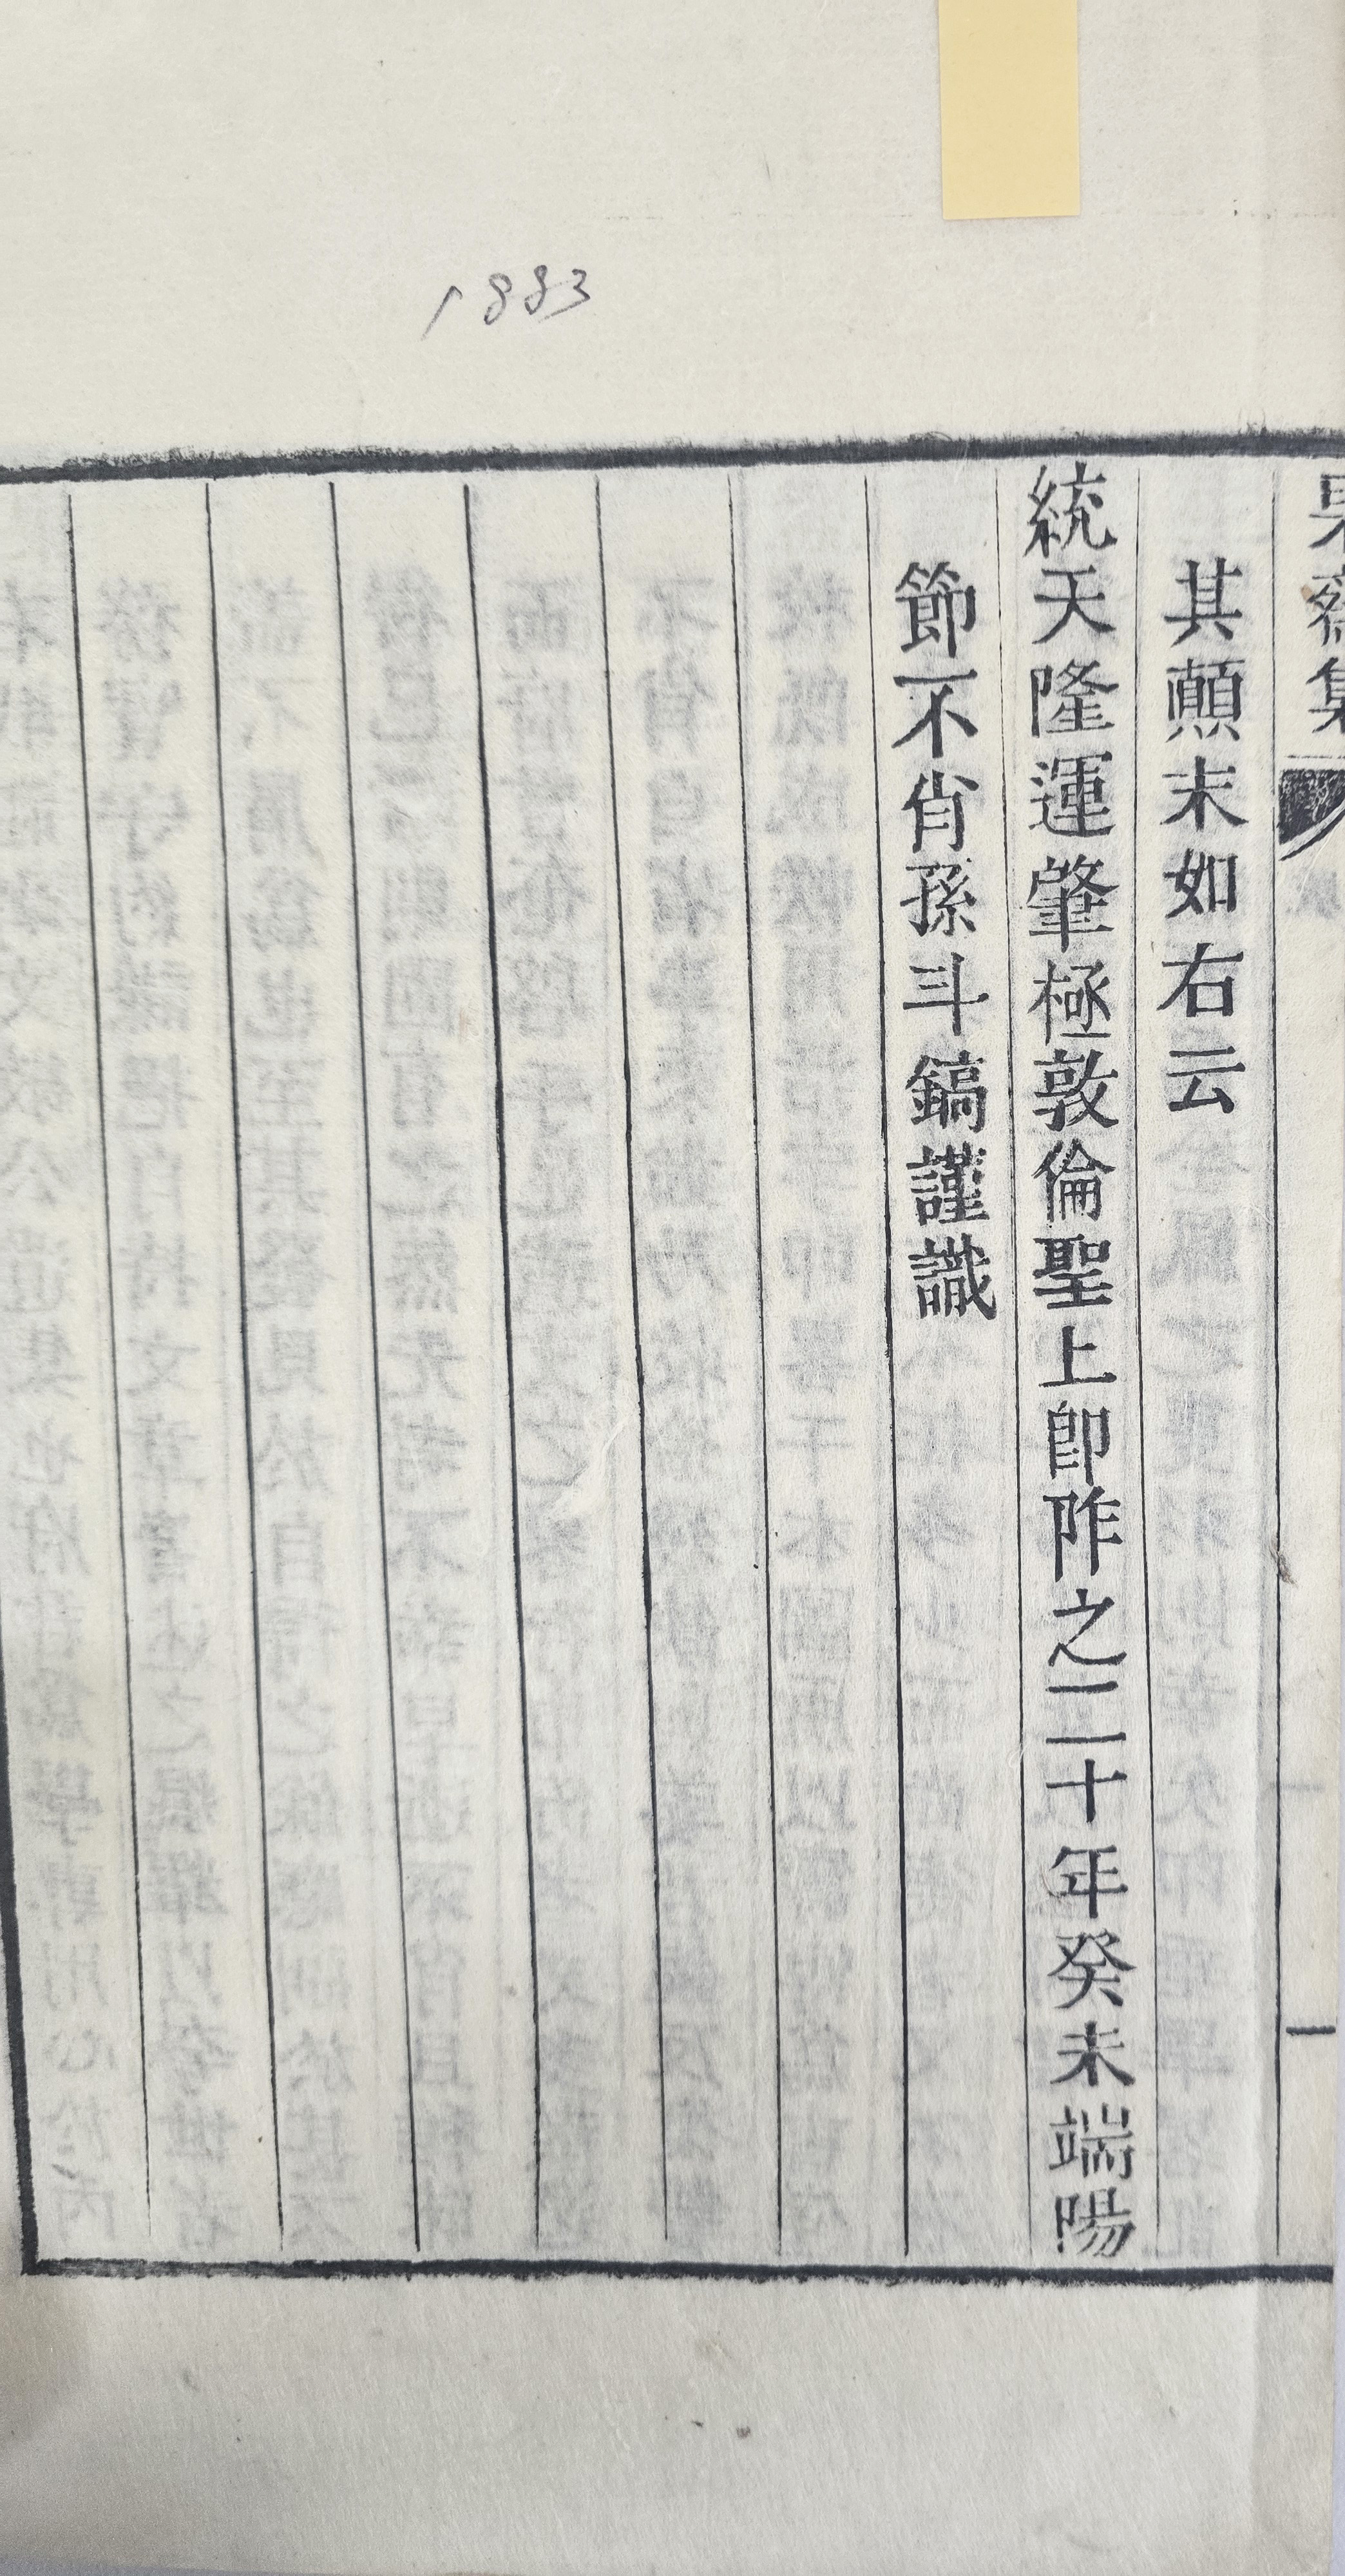 1883
齋集
一
其顚末如右云
統天隆運肇極敦倫聖上卽阼之二十年癸未端陽
節不肖孫斗鎬謹識